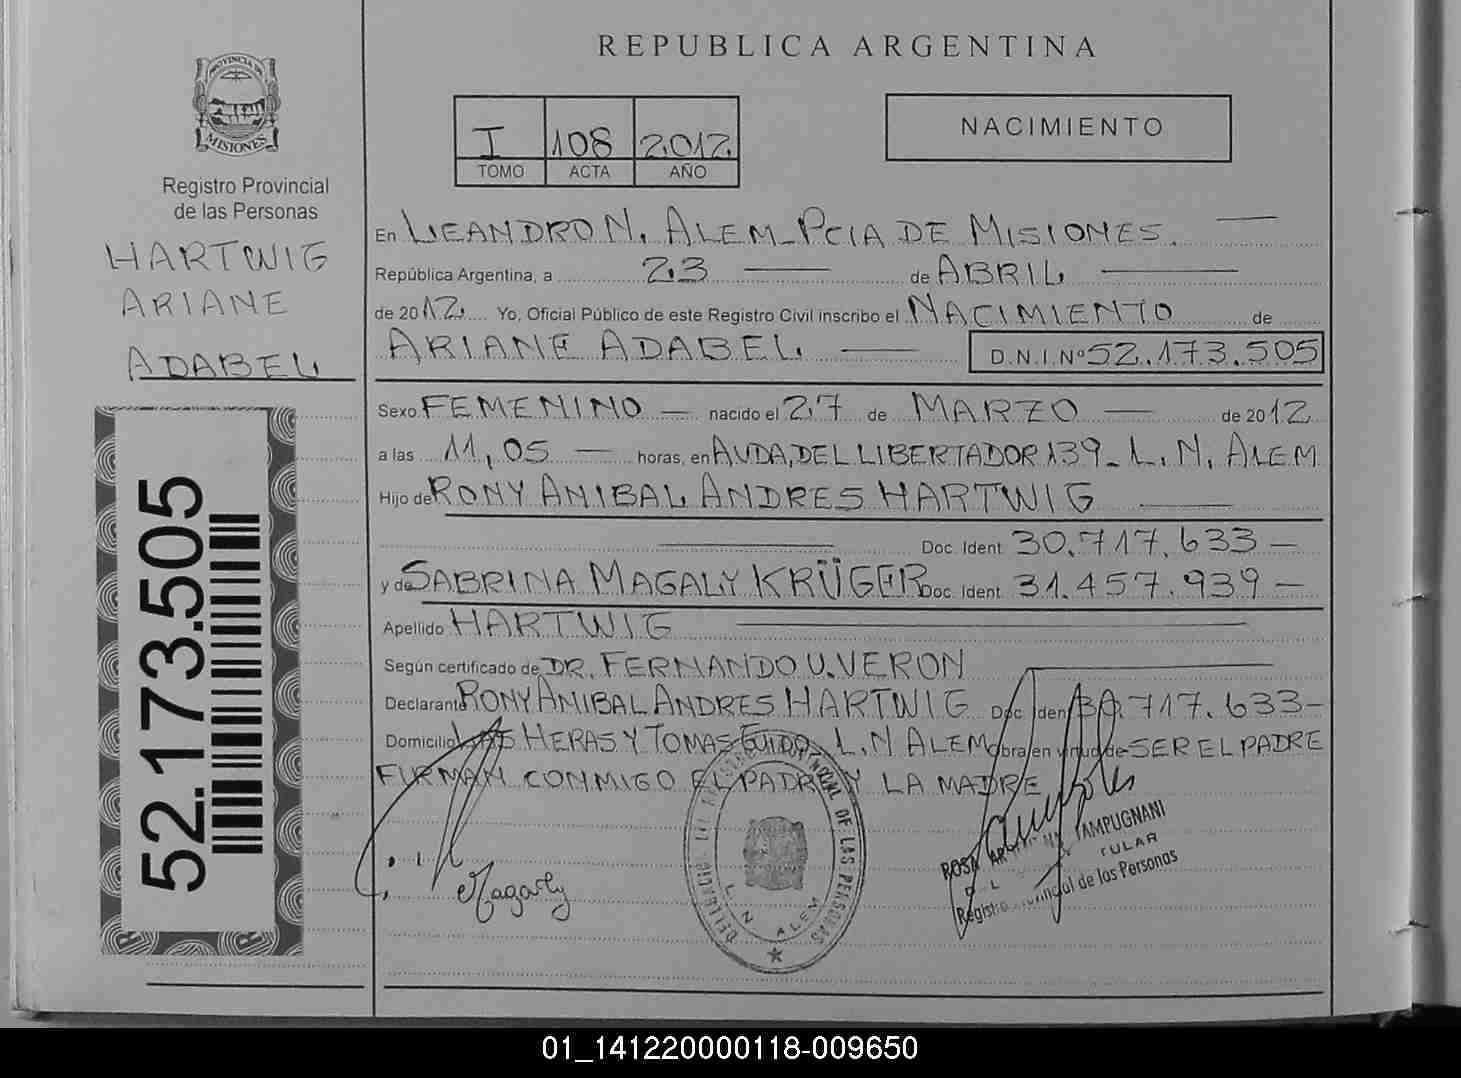 REPUBLICA ARGENTINA
PROVINCIA DE
MISIONES
Registro Provincial
de las Personas
HARTWIG
ARIANE
ADABEL
52.173.505
I 108 2.012.
TOMO ACTA AÑO
NACIMIENTO
En LEANDRO N. ALEM - PCIA DE MISIONES.
República Argentina, a 23 de ABRIL
de 2012. Yo, Oficial Público de este Registro Civil inscribo el NACIMIENTO de
ARIANE ADABEL. D.N.I.Nº 52.173.505
Sexo FEMENINO nacido el 27 de MARZO de 2012
a las 11,05 horas, en AVDA. DEL LIBERTADOR 139 - L. N. ALEM
Hijo de RONY ANIBAL ANDRES HARTWIG
Doc. Ident. 30.717.633
y de SABRINA MAGALY KRÜGER Doc. Ident. 31.457.939
Apellido HARTWIG
Según certificado de DR. FERNANDO U. VERON
Declarante RONY ANIBAL ANDRES HARTWIG Doc. Iden 30.717.633
Domicilio LAS HERAS Y TOMAS GUIDO - L. N ALEM obra en virtud de SER EL PADRE
FIRMAN CONMIGO EL PADRE Y LA MADRE
Magaly
DELEGACION DEL REGISTRO PROVINCIAL DE LAS PERSONAS
L. N. ALEM
ROSA
AMPUGNANI
TULAR
Registro Provincial de las Personas
01_141220000118-009650